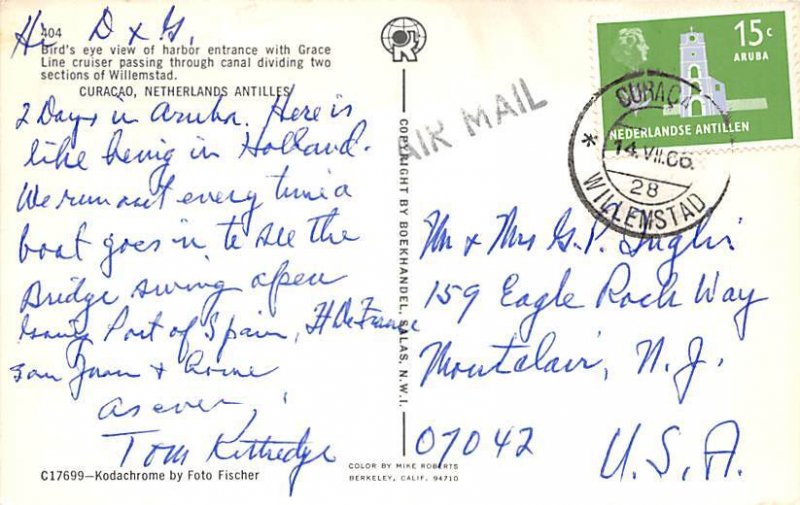 Hi D & G,
404
Bird's eye view of harbor entrance with Grace
Line cruiser passing through canal dividing two
sections of Willemstad.
CURAÇAO, NETHERLANDS ANTILLES
2 Days in Aruba. Here is
like being in Holland.
We run out every time a
boat goes in, to see the
Bridge swing open
Port of Spain, Ft De France
San Juan + home
as ever,
Tom Kittredge
C17699—Kodachrome by Foto Fischer
COPYRIGHT BY BOEKHANDEL, SALAS, N.W.I.
COLOR BY MIKE ROBERTS
BERKELEY, CALIF. 94710
AIR MAIL
15c
ARUBA
NEDERLANDSE ANTILLEN
CURAÇA
14.VII.66.
28
* WILLEMSTAD
Mr & Mrs G. P. Inglis
159 Eagle Rock Way
Montclair, N. J.
07042
U. S. A.